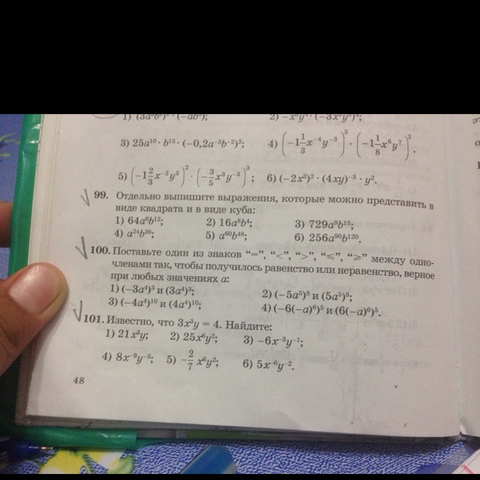 3) 25a¹⁰ · b¹⁵ · (−0,2a⁻²b⁻²)³;
5) (−1 2/3 x⁻²y³)² · (−3/5 x³y⁻³)³; 6) (−2x³)² · (4xy)⁻³ · y².
99. Отдельно выпишите выражения, которые можно представить в
виде квадрата и в виде куба:
1) 64a⁶b¹²; 2) 16a⁸b⁴; 3) 729a⁹b¹⁵;
4) a²⁴b³⁶; 5) a⁶⁰b⁴⁸; 6) 256a⁹⁰b¹²⁰.
100. Поставьте один из знаков “=”, “<”, “>”, “⩽”, “⩾” между одно-
членами так, чтобы получилось равенство или неравенство, верное
при любых значениях a:
1) (−3a⁴)³ и (3a⁴)³; 2) (−5a⁵)⁸ и (5a⁵)⁸;
3) (−4a⁴)¹⁰ и (4a⁴)¹⁰; 4) (−6(−a)⁶)⁵ и (6(−a)⁶)⁵.
101. Известно, что 3x³y = 4. Найдите:
1) 21x³y; 2) 25x⁶y²; 3) −6x⁻³y⁻¹;
4) 8x⁻⁹y⁻³; 5) −2/7 x⁶y²; 6) 5x⁻⁶y⁻².
48